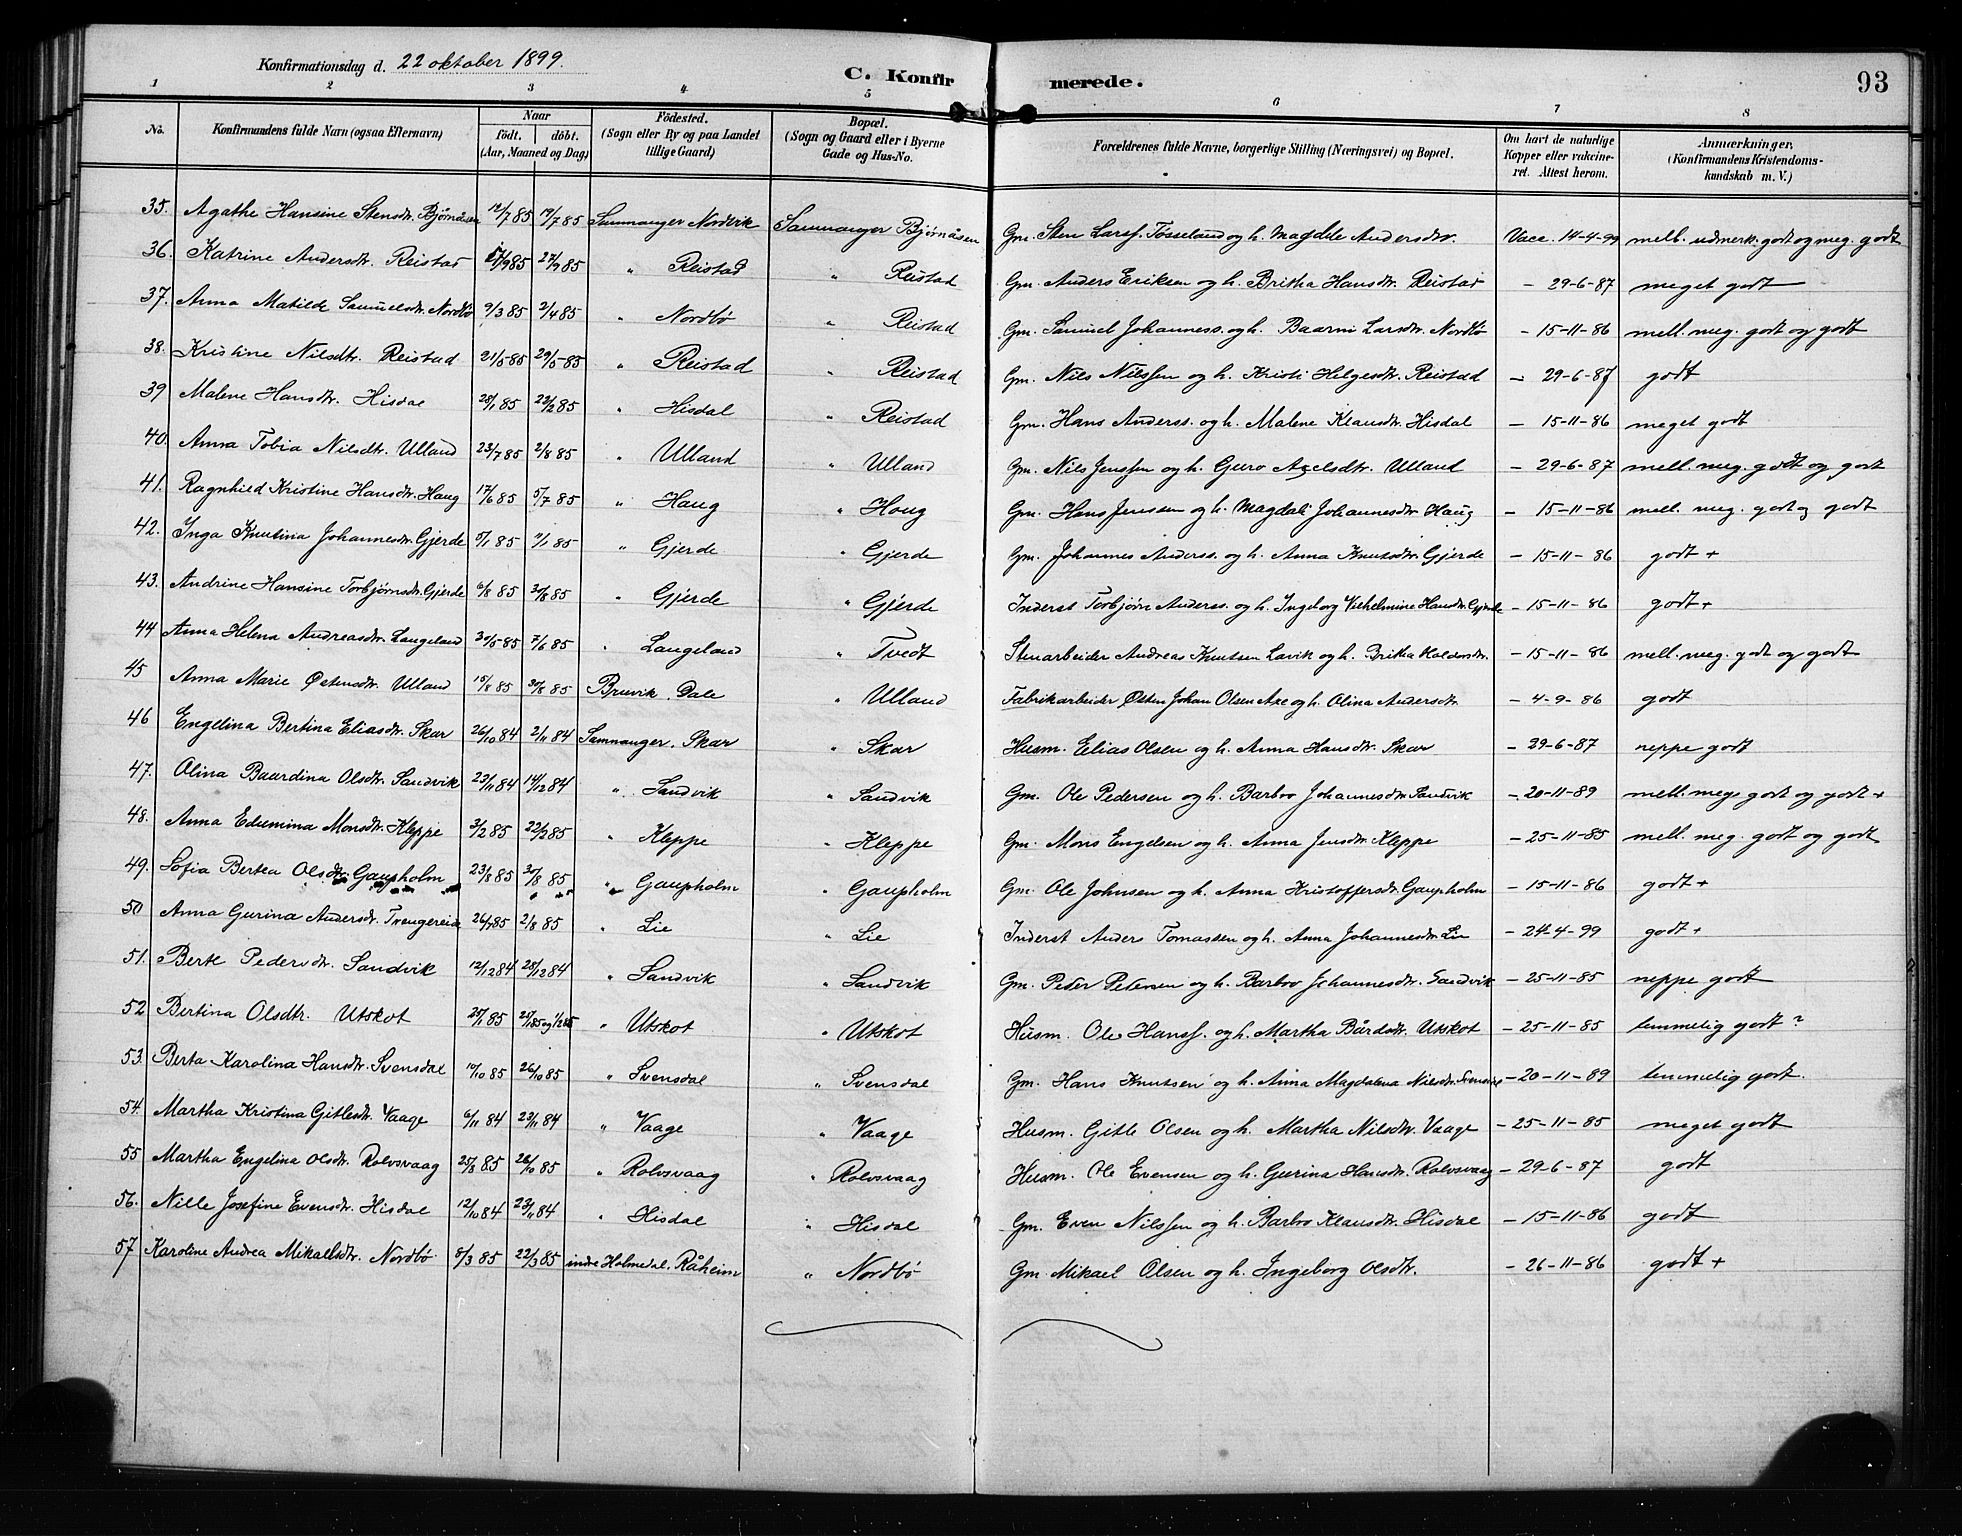 Konfirmationsdag d. 22 oktober 1899.
C. Konfirmerede.
93
1 2 3 4 5 6 7 8
No. Konfirmandens fulde Navn (ogsaa Efternavn) Naar födt. döbt. (Aar, Maaned og Dag) Födested. (Sogn eller By og paa Landet tillige Gaard) Bopæl. (Sogn og Gaard eller i Byerne Gade og Hus-No. Forældrenes fulde Navne, borgerlige Stilling (Næringsvei) og Bopæl. Om havt de naturlige Kopper eller vakcineret. Attest herom. Anmærkninger. (Konfirmandens Kristendomskundskab m. V.)
35. Agathe Hansine Stensdtr. Bjørnåsen 12/7 85 19/7 85 Samnanger Nordvik Samnanger Bjørnåsen Gm. Sten Larss. Tøsseland og h. Magdele Andersdtr. Vacc. 14-4-99 mell. udmerk. godt og meg. godt
36. Katrine Andersdtr. Reistad 17/9 85 27/9 85 " Reistad " Reistad Gm. Anders Eriksen og h. Britha Hansdtr. Reistad - 29-6-87 meget godt
37. Anna Matilde Samuelsdtr. Nordbø 9/3 85 2/4 85 " Nordbø " Reistad Gm. Samuel Johanness. og h. Baarni Larsdtr. Nordbø - 15-11-86 mell. meg. godt og godt
38. Kristine Nilsdtr. Reistad 21/5 85 29/5 85 " Reistad " Reistad Gm. Nils Nilssen og h. Kristi Helgesdtr. Reistad - 29-6-87 godt
39 Malene Hansdtr. Hisdal 28/1 85 22/2 85 " Hisdal " Reistad Gm. Hans Anderss. og h. Malene Klausdtr. Hisdal - 15-11-86 meget godt
40. Anna Tobia Nilsdtr. Ulland 23/7 85 2/8 85 " Ulland " Ulland Gm. Nils Jenssen og h. Guro Axelsdtr. Ulland - 29-6-87 mell. meg. godt og godt
41. Ragnhild Kristine Hansdtr. Haug 17/6 85 5/7 85 " Haug " Houg Gm. Hans Jenssen og h. Magdali Johannesdtr. Haug - 15-11-86 mell. meg. godt og godt
42. Inga Knutina Johannesdtr. Gjerde 5/1 85 11/1 85 " Gjerde " Gjerde Gm. Johannes Anderss. og h. Anna Knutsdtr. Gjerde - 15-11-86 godt +
43. Andrine Hansine Torbjørnsdtr. Gjerde 6/8 85 30/8 85 " Gjerde " Gjerde Inderst Torbjørn Anderss. og h. Ingeborg Vilhelmine Hansdtr. Gjerde - 15-11-86 godt +
44 Anna Helena Andreasdtr. Langeland 30/5 85 7/6 85 " Langeland " Tvedt Stenarbeider Andreas Knutsen Lavik og h. Britha Haldorsdtr. - 15-11-86 mell. meg. godt og godt
45 Anna Marie Østensdtr. Ulland 15/8 85 30/8 85 Bruvik. Dale " Ulland Fabrikarbeider Østen Johan Olsen Axe og h. Olina Andersdtr - 4-9-86 godt
46 Engelina Bertina Eliasdtr. Skar 26/10 84 2/11 84 Samnanger. Skar " Skar Husm. Elias Olsen og h. Anna Hansdtr. Skar - 29-6-87 neppe godt
47. Olina Baardina Olsdtr. Sandvik 23/11 84 14/12 84 " Sandvik " Sandvik Gm. Ole Pedersen og h. Barbro Johannesdtr. Sandvik - 20-11-89 mell. meg. godt og godt +
48. Anna Edemina Monsdtr. Kleppe 3/2 85 22/2 85 " Kleppe " Kleppe Gm. Mons Engelsen og h. Anna Jensdtr. Kleppe - 25-11-85 mell. meg. godt og godt
49. Sofia Bertea Olsdtr. Gaupholm 23/8 85 30/8 85 " Gaupholm " Gaupholm Gm. Ole Johnsen og h. Anna Kristoffersdtr. Gaupholm - 15-11-86 godt +
50 Anna Gurina Andersdtr. Trengereid 26/7 85 2/8 85 " Lie " Lie Inderst Anders Tomassen og h. Anna Johannesdtr. Lie - 24-4-99 godt +
51. Berte Pedersdtr. Sandvik 12/12 84 28/12 84 " Sandvik " Sandvik Gm. Peder Petersen og h. Barbro Johannesdtr. Sandvik - 25-11-85 neppe godt
52 Bertina Olsdtr. Utskot 25/1 85 25/1 85 og 1/2 85 " Utskot " Utskot Husm. Ole Hanss. og h. Martha Bårdsdtr. Utskot - 25-11-85 temmelig godt ?
53. Berta Karolina Hansdtr. Svensdal 10/10 85 26/10 85 " Svensdal " Svensdal Gm. Hans Knutsen og h. Anna Magdalena Nilsdtr. Svensdal - 20-11-89 temmelig godt.
54. Martha Kristina Gitlesdtr. Vaage 6/11 84 23/11 84 " Vaage " Vaage Husm. Gitle Olsen og h. Martha Nilsdtr. Vaage - 25-11-85 meget godt
55 Martha Engelina Olsdtr. Rolvsvaag 25/8 85 26/10 85 " Rolvsvaag " Rolvsvaag Husm. Ole Evensen og h. Gurina Hansdtr. Rolvsvaag - 29-6-87 godt
56. Nille Josefine Evensdtr. Hisdal 12/10 84 23/11 84 " Hisdal " Hisdal Gm. Even Nilssen og h. Barbro Klausdtr. Hisdal - 15-11-86 godt
57 Karoline Andrea Mikaelsdtr. Nordbø 8/3 85 22/3 85 indre Holmedal. Råheim " Nordbø Gm. Mikael Olsen og h. Ingeborg Olsdtr. - 26-11-86 godt +